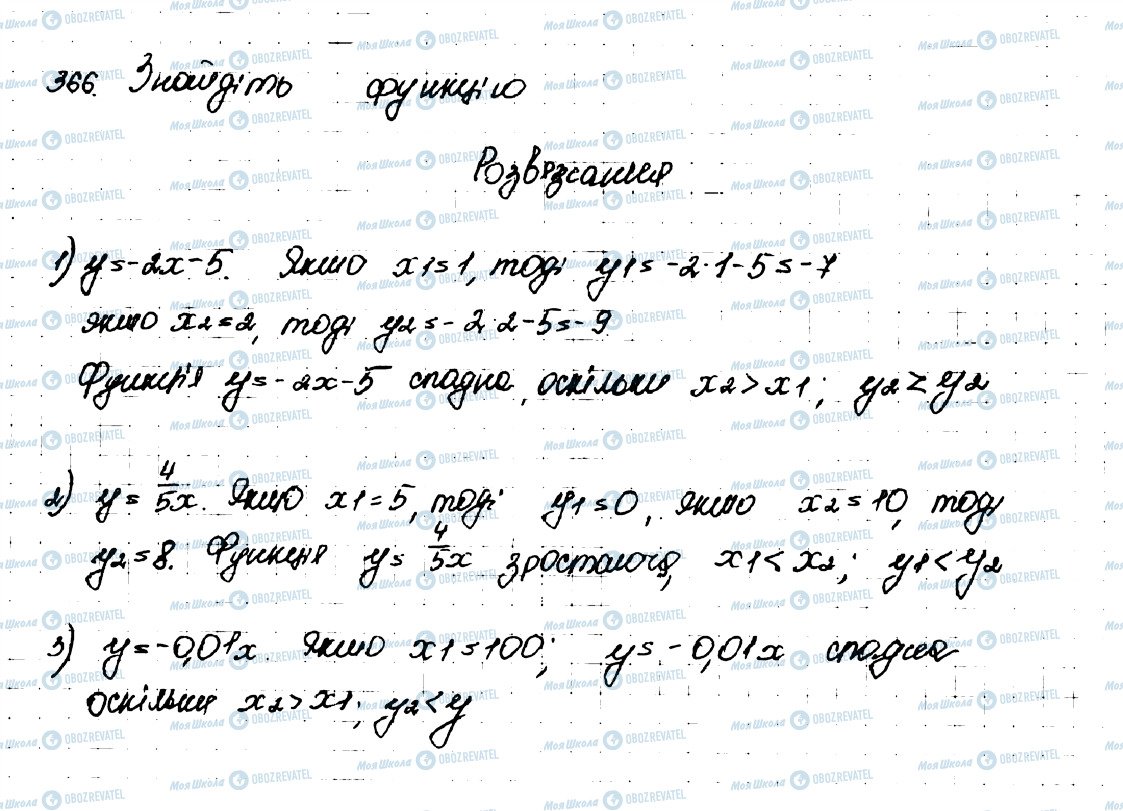 366. Знайдіть функцію
Розв'язання
1) y=-2x-5. Якщо x1=1, тоді y1=-2·1-5=-7
якщо x2=2, тоді y2=-2·2-5=-9
Функція y=-2x-5 спадна, оскільки x2>x1; y2>y2
2) y=4/5x. Якщо x1=5, тоді y1=0, якщо x2=10, тоді
y2=8. Функція y=4/5x зростаюча, x1<x2; y1<y2
3) y=-0,01x. Якщо x1=100; y=-0,01x спадна
оскільки x2>x1; y2<y